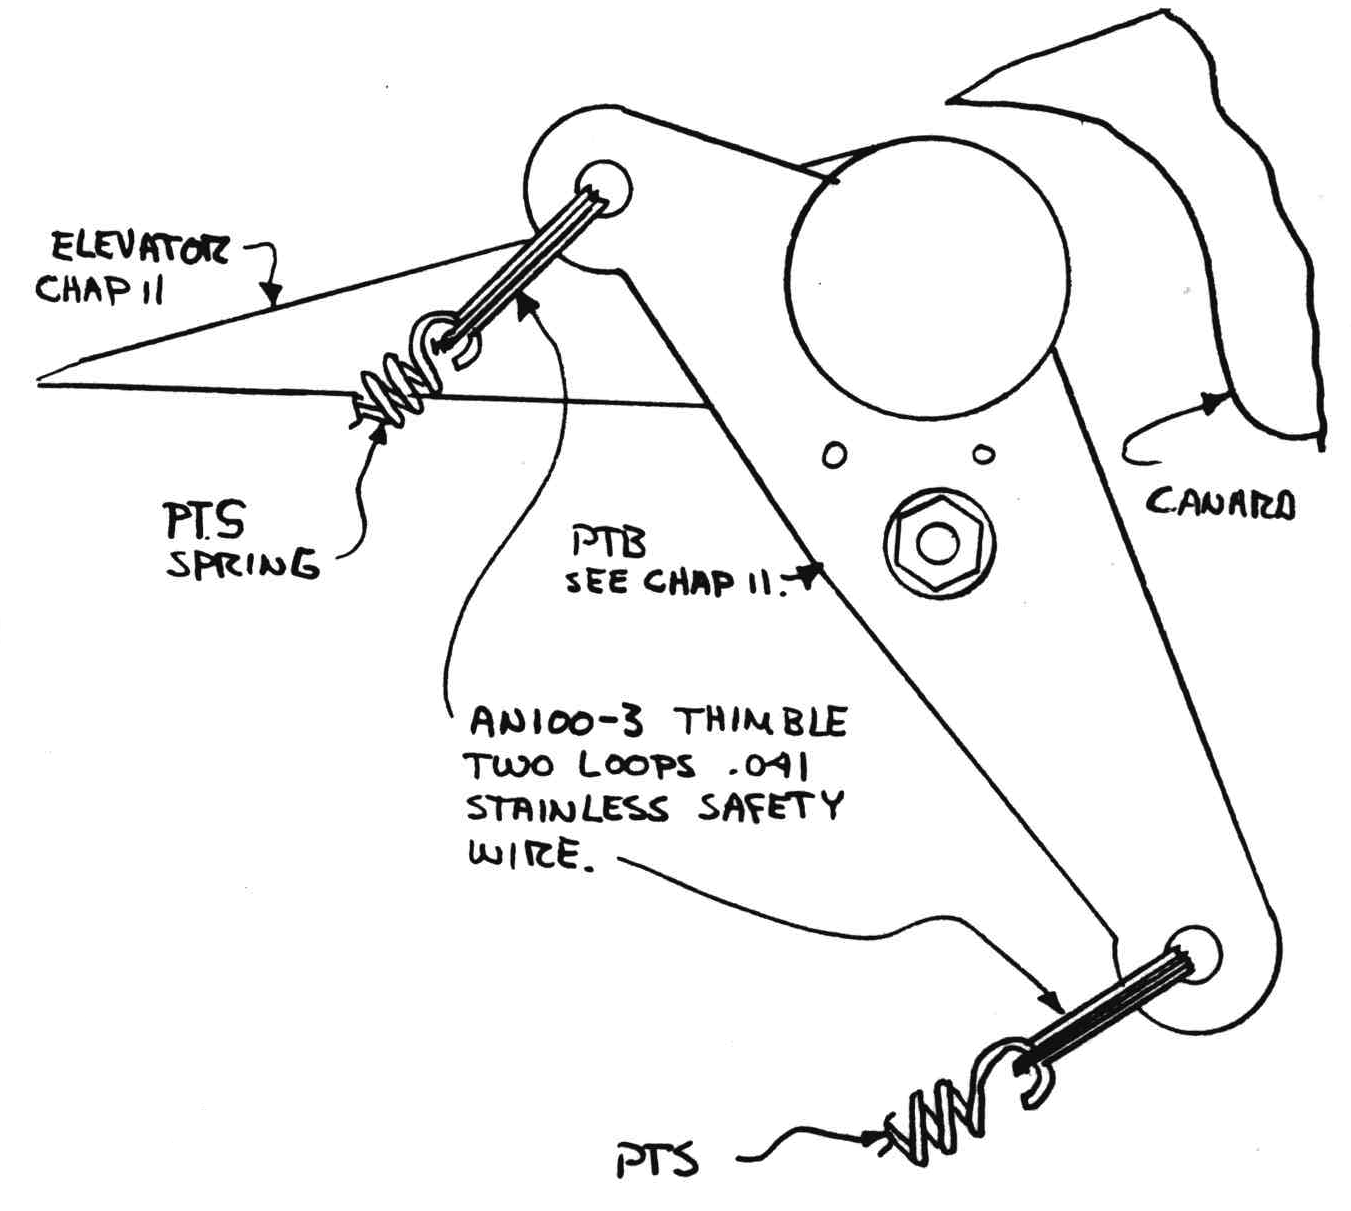 ELEVATOR
CHAP 11
PTS
SPRING
PTB
SEE CHAP 11.
CANARD
AN100-3 THIMBLE
TWO LOOPS .041
STAINLESS SAFETY
WIRE.
PTS